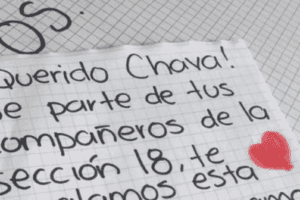 OS.
Querido Chava!
De parte de tus
compañeros de la
sección 18, te
esta